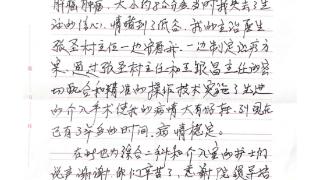 肝脏肿瘤，大小约3公分，当时我失去了生
活的信心，情绪到了低谷，我的主治医生
张圣村主任一边安慰我，一边制定治疗方
案，通过张圣村主任和王银昌主任的密
切配合和精准的操作技术实施了出色
的介入手术使我的病情大有好转，到现在
已有3年多的时间，病情稳定。
在此也为综合二科和介入室的护士们
说声谢谢你们辛苦了，感谢院领导培